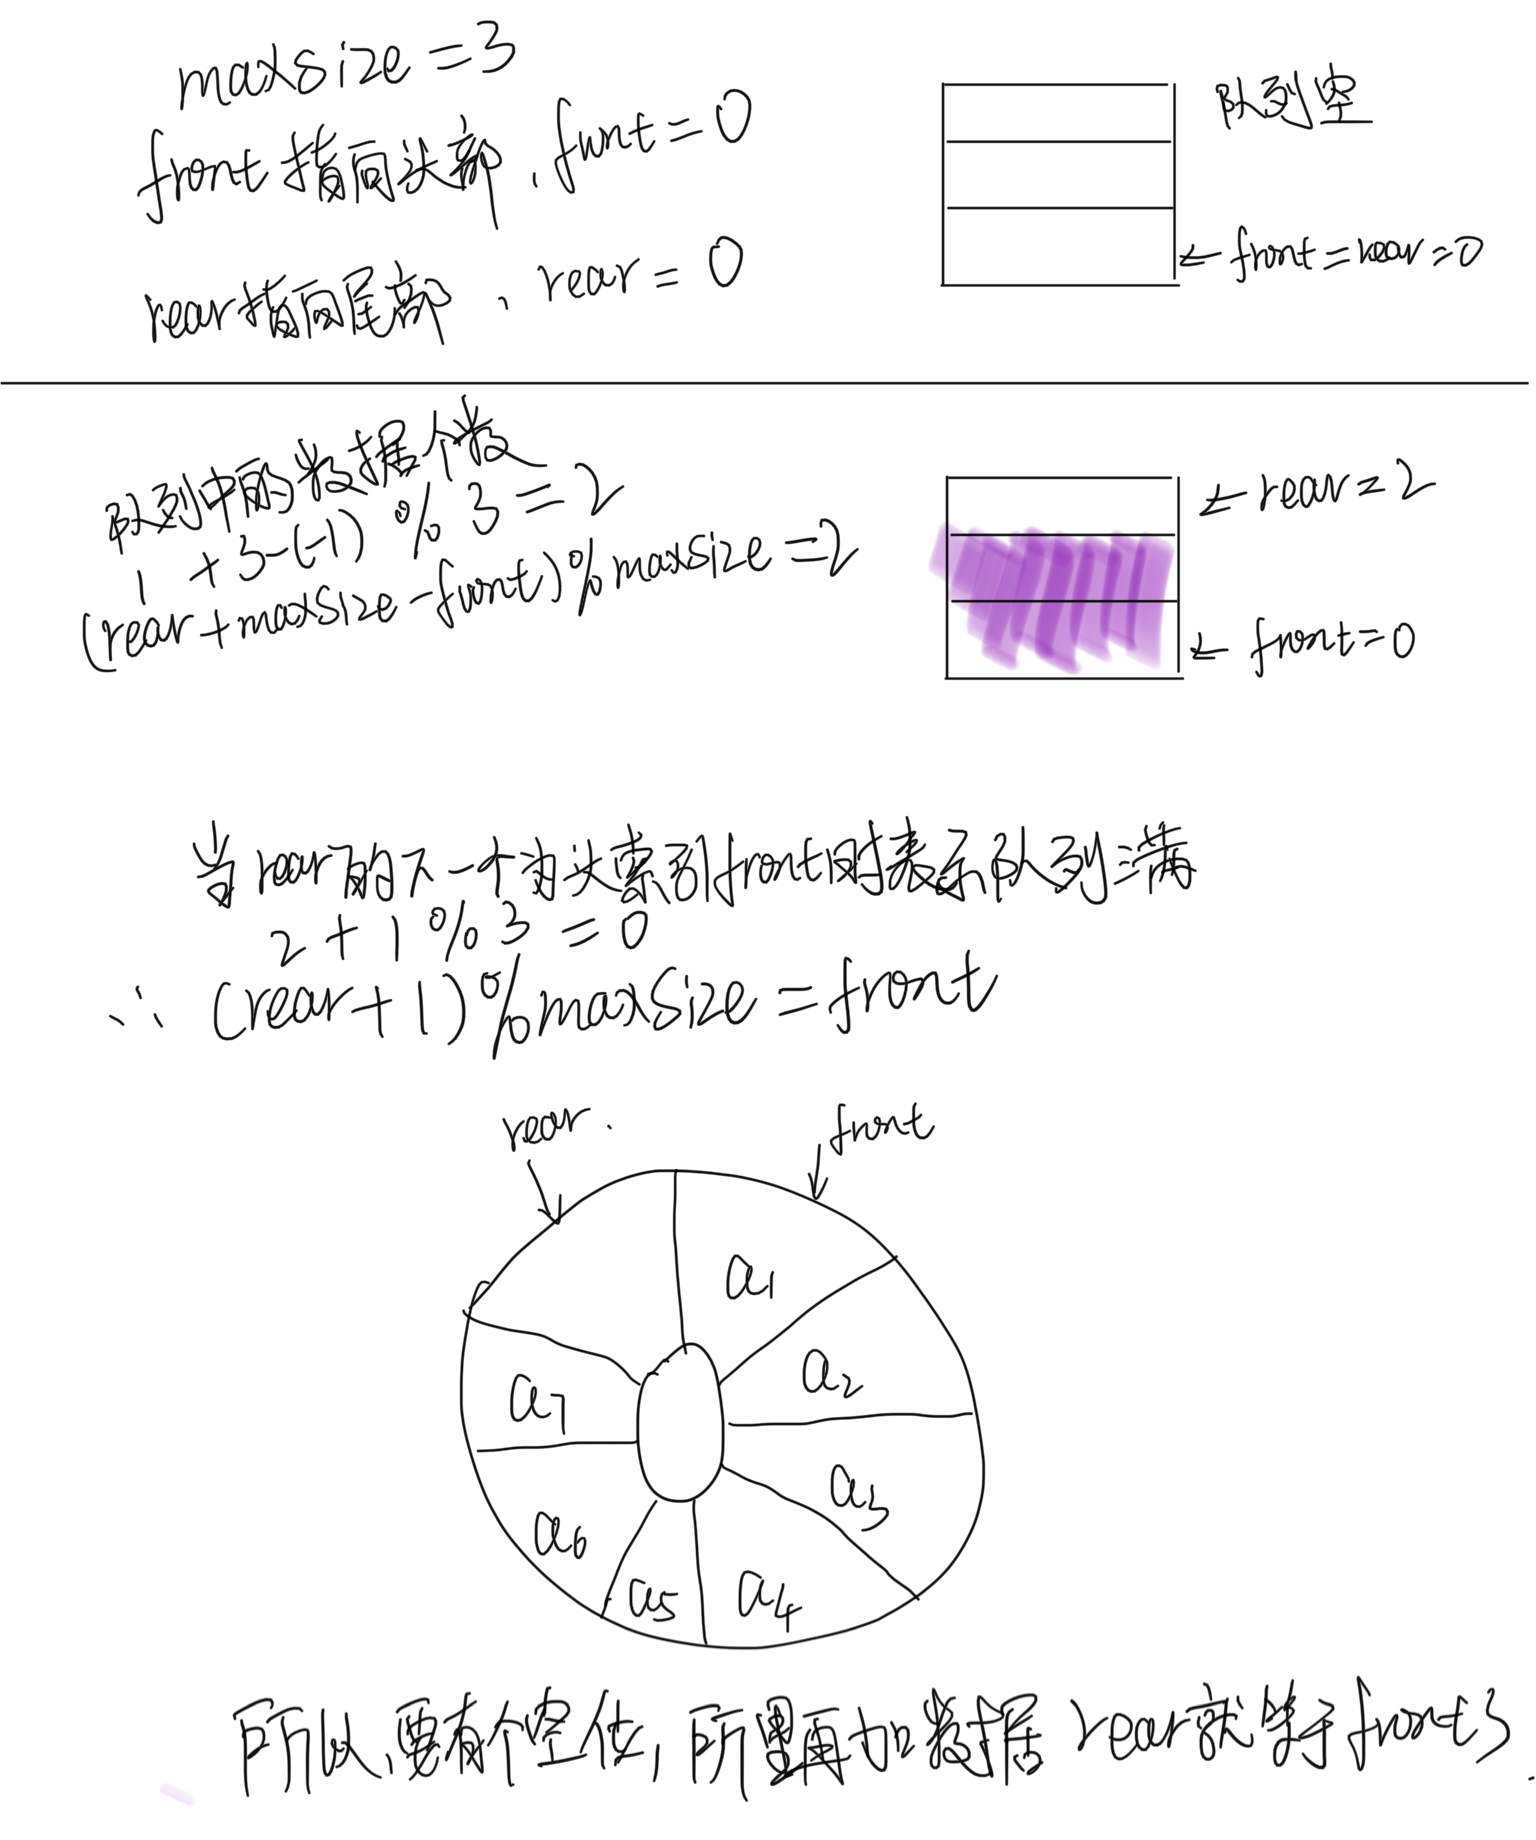 maxsize=3
front指向头部、front=0
rear指向尾部、rear=0
队列空
←front=rear=0
队列中的数据个数
1+3-(-1) % 3=2
(rear+maxsize-front)%maxsize=2
←rear=2
←front=0
当rear的下一个为头索引front时表示队列满
2+1%3=0
∴ (rear+1)%maxSize=front
rear.
front
a1
a2
a3
a4
a5
a6
a7
所以、要有个空位,所里再加数据 rear就等于front了.